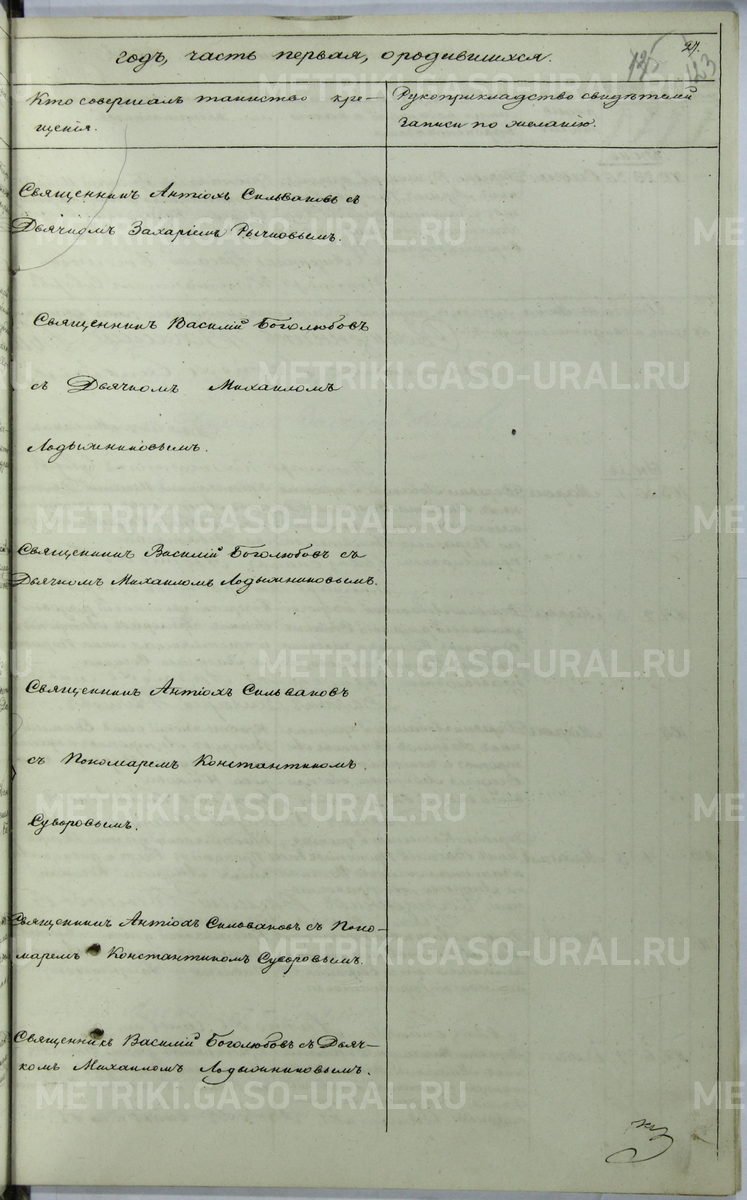 27.
125 123
годъ, часть первая, о родившихся.
Кто совершалъ таинство кре-
щенія.
Рукоприкладство свидѣтелей
записи по желанію.
Священникъ Антіохъ Сильвановъ съ
Дьячкомъ Захаріемъ Рычковымъ.
Священникъ Василій Боголюбовъ
съ Дьячкомъ Михаиломъ
Лодыжниковымъ.
Священникъ Василій Боголюбовъ съ
Дьячкомъ Михаиломъ Лодыжниковымъ.
Священникъ Антіохъ Сильвановъ
съ Пономаремъ Константиномъ
Суворовымъ.
Священникъ Антіохъ Сильвановъ съ Поно-
маремъ Константиномъ Суворовымъ.
Священникъ Василій Боголюбовъ съ Дьяч-
комъ Михаиломъ Лодыжниковымъ.
METRIKI.GASO-URAL.RU